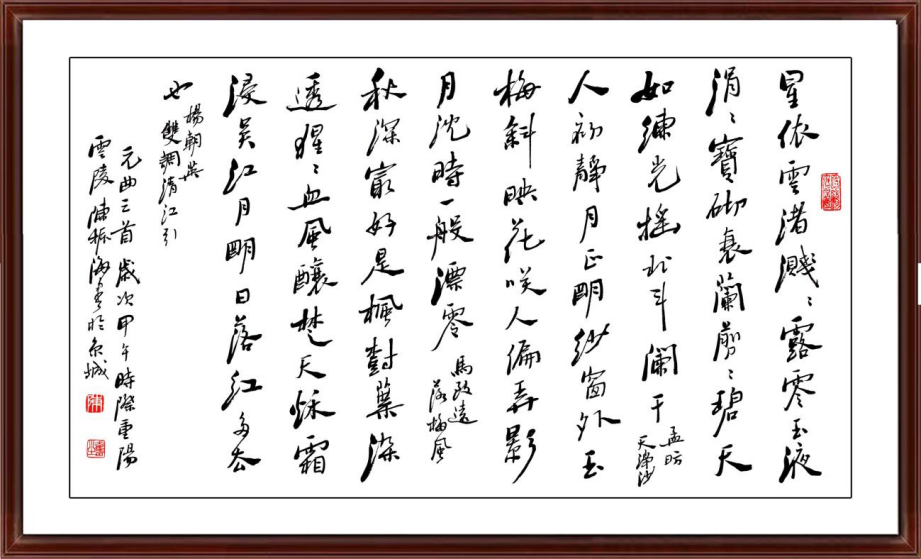 星依雲渚濺〻露零玉液
涓〻寶砌衰蘭剪〻碧天
如練光摇北斗闌干
孟昉
天淨沙
人初靜月正明紗窗外玉
梅斜映花咲人偏弄影
月沈時一般漂零
馬致遠
落梅風
秋深最好是楓樹葉染
透猩〻血風釀楚天秌霜
浸吳江月明日落紅多去
也
楊朝英
雙調清江引
元曲三首歲次甲午時際重陽
雲陵陳海書於京城